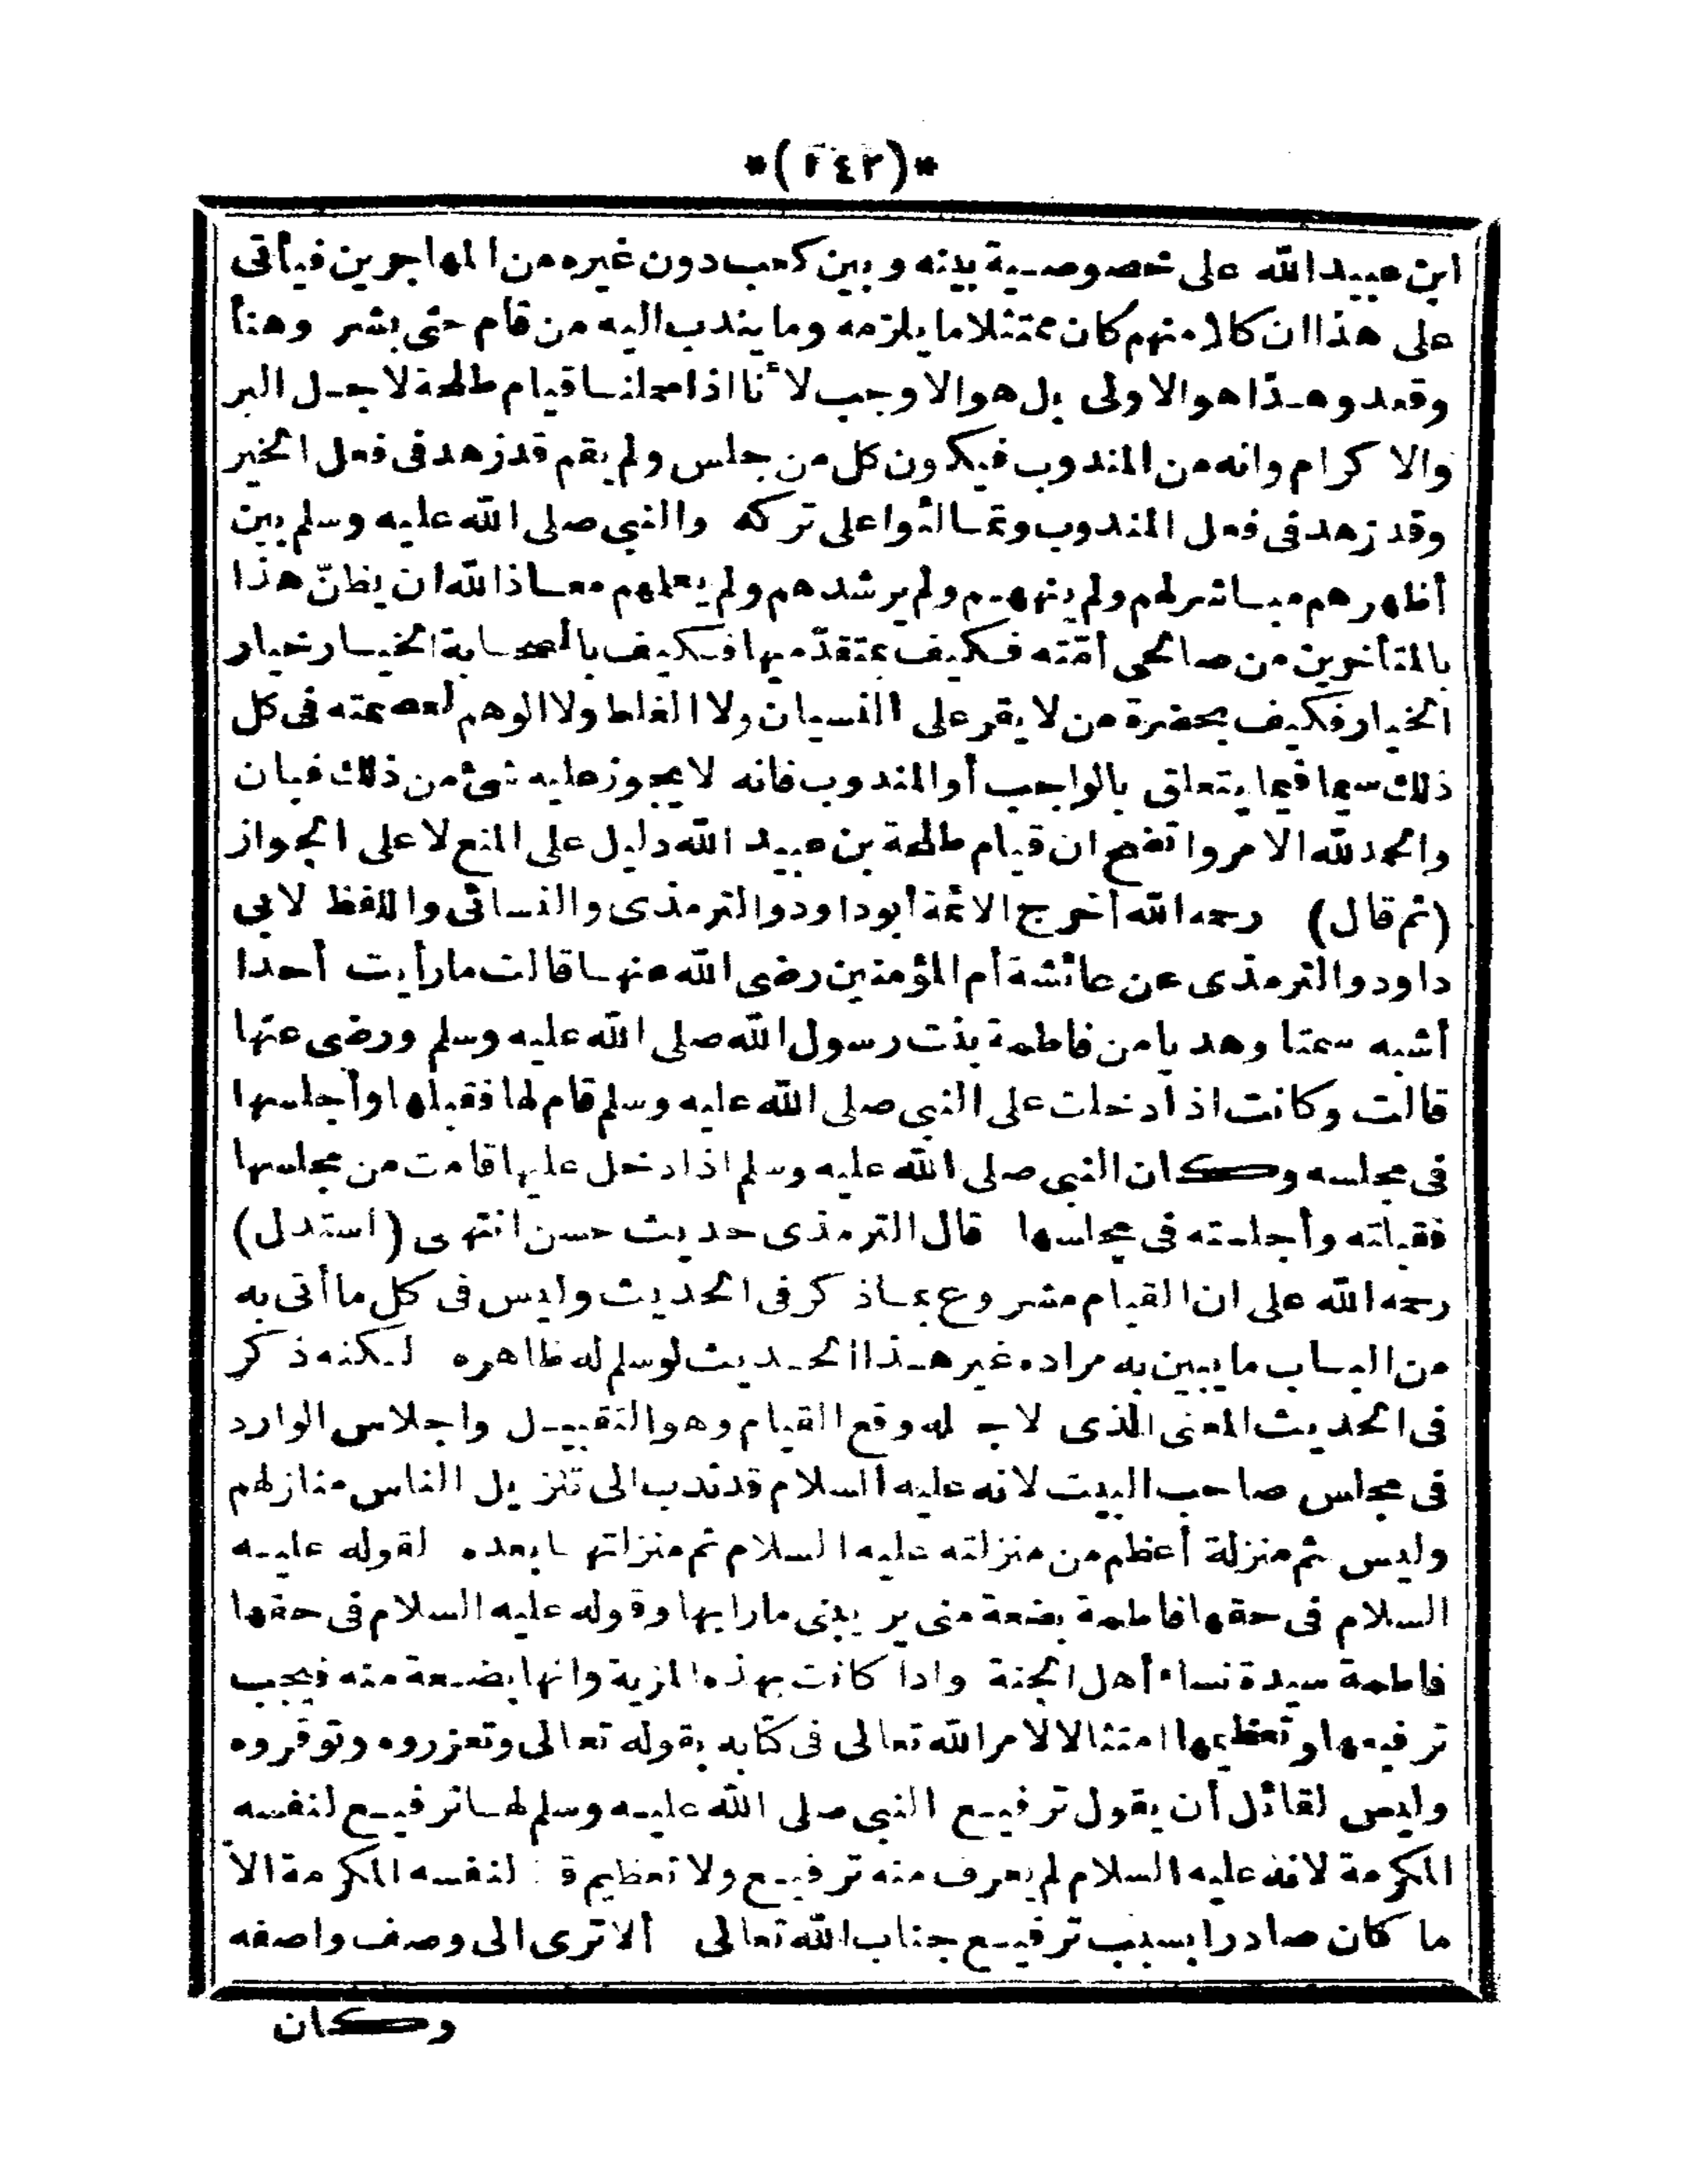 *(١٤٢)*
ابن عبيد الله على خصوصية بينه وبين كعب دون غيره من المهاجرين فيأتى
على هذا ان كلا منهم كان ممتثلا ما يلزمه وما يندب اليه من قام حتى بشر وهنأ
وقعد وهذا هو الاولى بل هو الاوجب لأنا اذا حملنا قيام طلحة لاجل البر
والاكرام وانه من المندوب فيكون كل من جلس ولم يقم قد زهد فى فعل الخير
وقد زهد فى فعل المندوب وتمالئوا على تركه والنبى صلى الله عليه وسلم بين
أظهرهم مباشر لهم ولم ينههم ولم يرشدهم ولم يعلمهم معاذ الله ان يظنّ هذا
بالمتأخرين من صالحى أمّته فكيف بمتقدّميها فكيف بالصحابة الخيار خيار
الخيار فكيف بحضرة من لا يقر على النسيان ولا الغلط ولا الوهم لعصمته فى كل
ذلك سيما فيما يتعلق بالواجب أو المندوب فانه لا يجوز عليه شئ من ذلك فبان
والحمد لله الامر واتضح ان قيام طلحة بن عبيد الله دليل على المنع لا على الجواز
(ثم قال) رحمه الله أخرج الائمة أبو داود والترمذى والنسائى واللفظ لابى
داود والترمذى عن عائشة أم المؤمنين رضى الله عنها قالت ما رأيت أحدا
أشبه سمتا وهديا من فاطمة بنت رسول الله صلى الله عليه وسلم ورضى عنها
قالت وكانت اذا دخلت على النبى صلى الله عليه وسلم قام لها فقبلها وأجلسها
فى مجلسه وكان النبى صلى الله عليه وسلم اذا دخل عليها قامت من مجلسها
فقبلته وأجلسته فى مجلسها قال الترمذى حديث حسن انتهى (استدل)
رحمه الله على ان القيام مشروع بما ذكر فى الحديث وليس فى كل ما أتى به
من الباب ما يبين به مراده غير هذا الحديث لو سلم له ظاهره لكنه ذكر
فى الحديث المعنى الذى لاجله وقع القيام وهو التقبيل واجلاس الوارد
فى مجلس صاحب البيت لانه عليه السلام قد ندب الى تنزيل الناس منازلهم
وليس ثم منزلة أعظم من منزلته عليه السلام ثم منزلتها بعده لقوله عليه
السلام فى حقها فاطمة بضعة منى يريبنى ما رابها وقوله عليه السلام فى حقها
فاطمة سيدة نساء أهل الجنة واذا كانت بهذه المزية وانها بضعة منه فيجب
ترفيعها وتعظيمها امتثالا لامر الله تعالى فى كتابه بقوله تعالى وتعزروه وتوقروه
وليس لقائل أن يقول ترفيع النبى صلى الله عليه وسلم لها ترفيع لنفسه
المكرمة لانه عليه السلام لم يعرف منه ترفيع ولا تعظيم لنفسه المكرمة الا
ما كان صادرا بسبب ترفيع جناب الله تعالى ألا ترى الى وصف واصفه
وكان